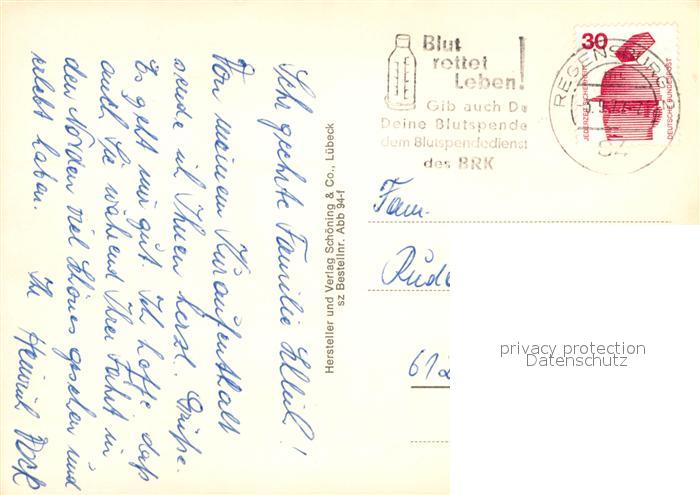 Sehr geehrte Familie
Von meinem Kuraufenthalt
sende ich Ihnen herzl. Grüße.
Es geht mir gut. Ich hoffe, daß
auch Sie während Ihrer Fahrt in
den Norden viel Schönes gesehen und
erlebt haben.
Ihr Heinrich
Hersteller und Verlag Schöning & Co., Lübeck
sz Bestellnr. Abb 94-f
Blut
rettet
Leben!
Gib auch Du
Deine Blutspende
dem Blutspendedienst
des BRK
REGENSBURG
30
JEDERZEIT SICHERHEIT
DEUTSCHE BUNDESPOST
Fam.
privacy protection
Datenschutz